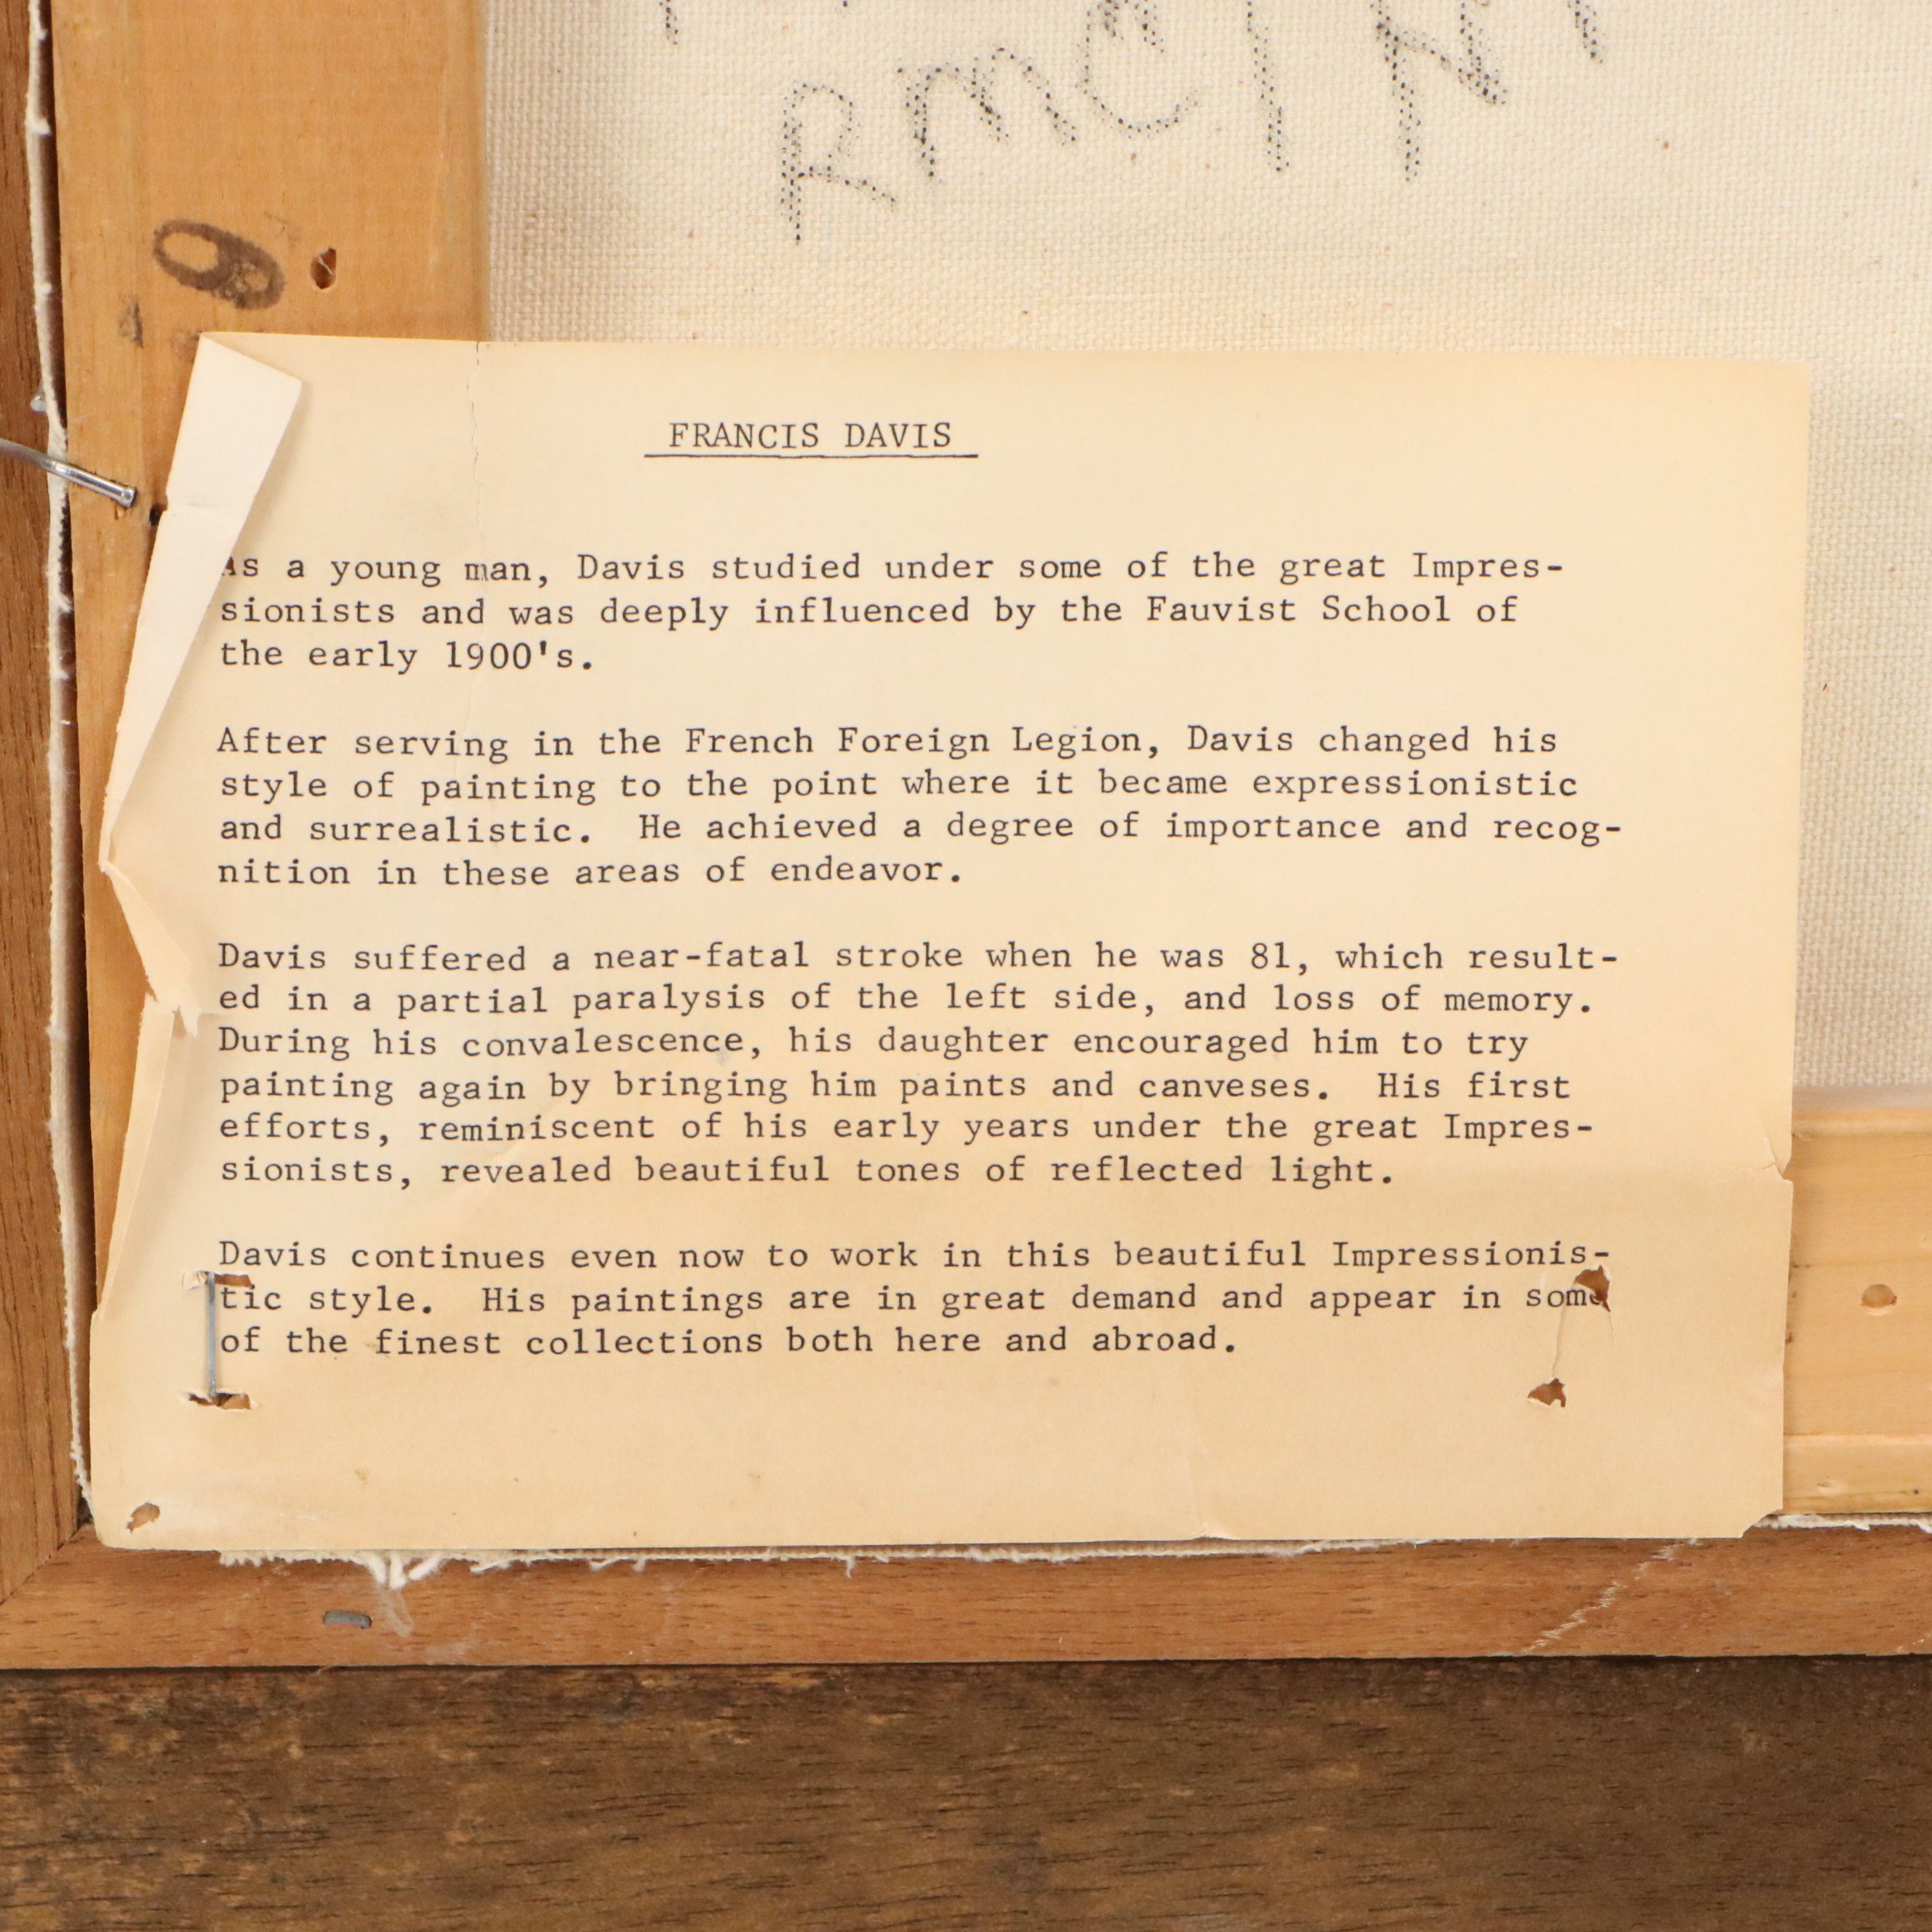 FRANCIS DAVIS
As a young man, Davis studied under some of the great Impres-
sionists and was deeply influenced by the Fauvist School of
the early 1900's.
After serving in the French Foreign Legion, Davis changed his
style of painting to the point where it became expressionistic
and surrealistic. He achieved a degree of importance and recog-
nition in these areas of endeavor.
Davis suffered a near-fatal stroke when he was 81, which result-
ed in a partial paralysis of the left side, and loss of memory.
During his convalescence, his daughter encouraged him to try
painting again by bringing him paints and canveses. His first
efforts, reminiscent of his early years under the great Impres-
sionists, revealed beautiful tones of reflected light.
Davis continues even now to work in this beautiful Impressionis-
tic style. His paintings are in great demand and appear in some
of the finest collections both here and abroad.